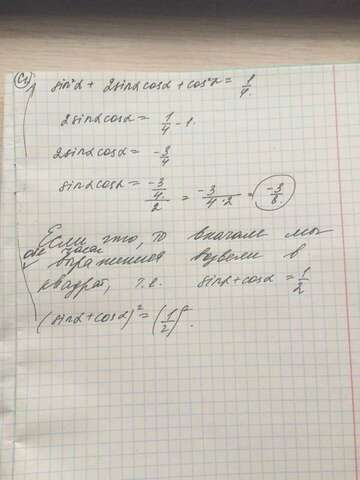 C1
sin²α + 2sinαcosα + cos²α = 1/4
2sinαcosα = 1/4 - 1.
2sinαcosα = -3/4
sinαcosα = (-3/4)/2 = -3/(4·2) = -3/8
Если что, то вначале мы
обе части
выражения возвели в
квадрат, т.е. sinα + cosα = 1/2
(sinα + cosα)² = (1/2)².